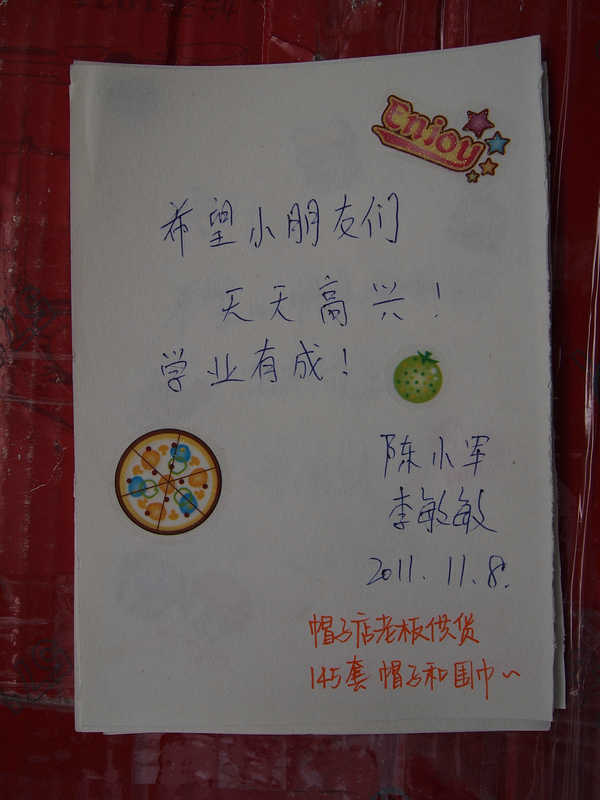 Enjoy
希望小朋友们
天天高兴！
学业有成！
陈小军
李敏敏
2011.11.8.
帽子店老板供货
145套帽子和围巾~